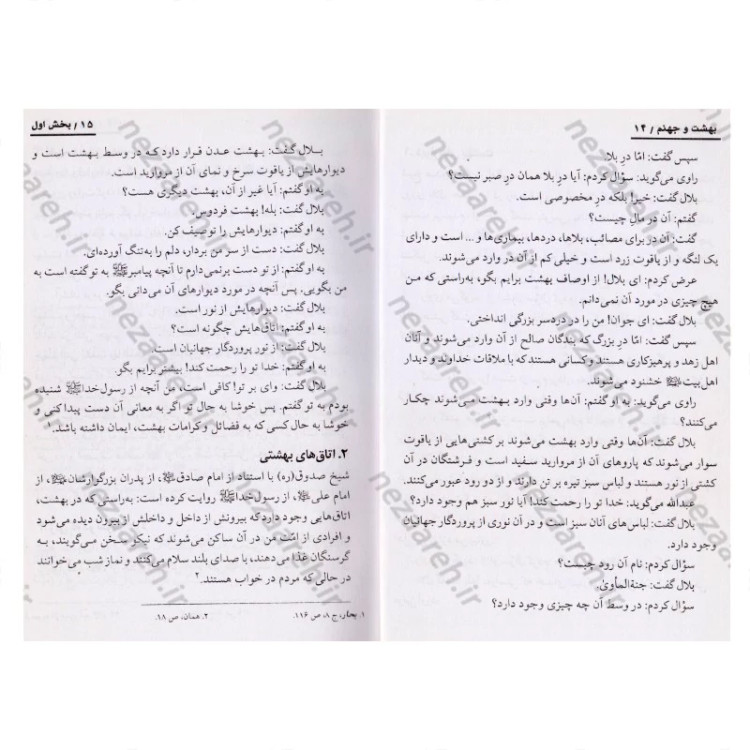 بهشت و جهنم / ۱۴
سپس گفت: امّا درِ بلا
راوی می‌گوید: سؤال کردم: آیا درِ بلا همان درِ صبر نیست؟
بلال گفت: خیر! بلکه درِ مخصوصی است.
گفتم: آن در مال چیست؟
گفت: آن در برای مصائب، بلاها، دردها، بیماری‌ها و ... است و دارای
یک لنگه و از یاقوت زرد است و خیلی کم از آن در وارد می‌شوند.
عرض کردم: ای بلال! از اوصاف بهشت برایم بگو، به‌راستی که من
هیچ چیزی در مورد آن نمی‌دانم.
بلال گفت: ای جوان! من را در دردسر بزرگی انداختی.
سپس گفت: امّا درِ بزرگ که بندگان صالح از آن وارد می‌شوند و آنان
اهل زهد و پرهیزکاری هستند و کسانی هستند که با ملاقات خداوند و دیدار
اهل‌بیت خشنود می‌شوند.
راوی می‌گوید: به او گفتم: آن‌ها وقتی وارد بهشت می‌شوند چکار
می‌کنند؟
بلال گفت: آن‌ها وقتی وارد بهشت می‌شوند بر کشتی‌هایی از یاقوت
سوار می‌شوند که پاروهای آن از مروارید سفید است و فرشتگان در آن
کشتی از نور هستند و لباس سبز تیره بر تن دارند و از دو رود عبور می‌کنند.
عبدالله می‌گوید: خدا تو را رحمت کند! آیا نور سبز هم وجود دارد؟
بلال گفت: لباس‌های آنان سبز است و در آن نوری از پروردگار جهانیان
وجود دارد.
سؤال کردم: نام آن رود چیست؟
بلال گفت: جنة‌المأوی.
سؤال کردم: در وسط آن چه چیزی وجود دارد؟
۱۵ / بخش اول
بلال گفت: بهشت عدن قرار دارد که در وسط بهشت است و
دیوارهایش از یاقوت سرخ و نمای آن از مروارید است.
به او گفتم: آیا غیر از آن، بهشت دیگری هست؟
بلال گفت: بله! بهشت فردوس.
به او گفتم: دیوارهایش را توصیف کن.
بلال گفت: دست از سر من بردار، دلم را به‌تنگ آورده‌ای.
به او گفتم: از تو دست برنمی‌دارم تا آنچه پیامبرﷺ به تو گفته است به
من بگویی. پس آنچه در مورد دیوارهای آن می‌دانی بگو.
بلال گفت: دیوارهایش از نور است.
به او گفتم: اتاق‌هایش چگونه است؟
بلال گفت: از نور پروردگار جهانیان است.
به او گفتم: خدا تو را رحمت کند! بیشتر برایم بگو.
بلال گفت: وای بر تو! کافی است، من آنچه از رسول خداﷺ شنیده
بودم به تو گفتم. پس خوشا به حال تو اگر به معانی آن دست پیدا کنی و
خوشا به حال کسی که به فضائل و کرامات بهشت، ایمان داشته باشد.¹
۲. اتاق‌های بهشتی
شیخ صدوق(ره) با استناد از امام صادق، از پدران بزرگوارشان، از
امام علی، از رسول خداﷺ روایت کرده است: به‌راستی که در بهشت،
اتاق‌هایی وجود دارد که بیرونش از داخل و داخلش از بیرون دیده می‌شود
و افرادی از امّت من در آن ساکن می‌شوند که نیکو سخن می‌گویند، به
گرسنگان غذا می‌دهند، با صدای بلند سلام می‌کنند و نماز شب می‌خوانند
در حالی که مردم در خواب هستند.²
۱. بحار، ج ۸، ص ۱۱۶. ۲. همان، ص ۱۸.
nezaareh.ir